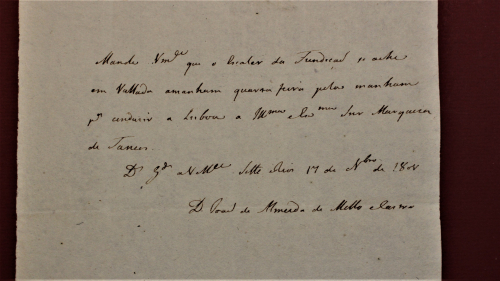 Mande Vm.ce que o Escaler da Fundicaõ se ache
em Vallada amanham quarta feira pela manham
p.a conduzir a Lisboa a Ill.ma e Ex.ma Snr.a Marqueza
de Tancos.
D.s g.de a V M.ce Sette Rios 17 de N.bro de
D. Joaõ de Almeida de Mello e Castro